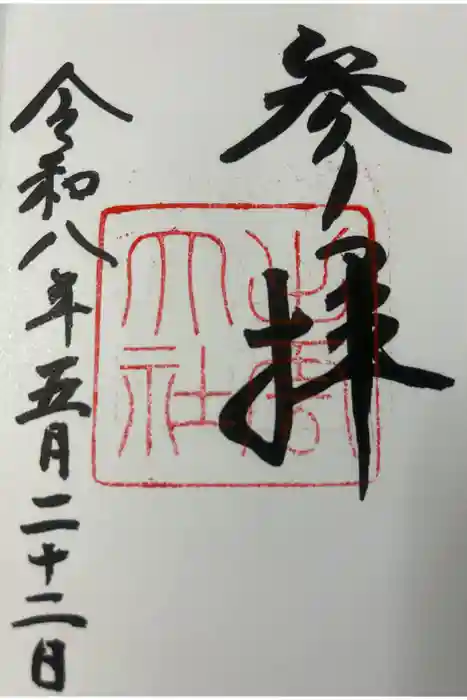 参拝
出雲
大社
令和八年五月二十二日